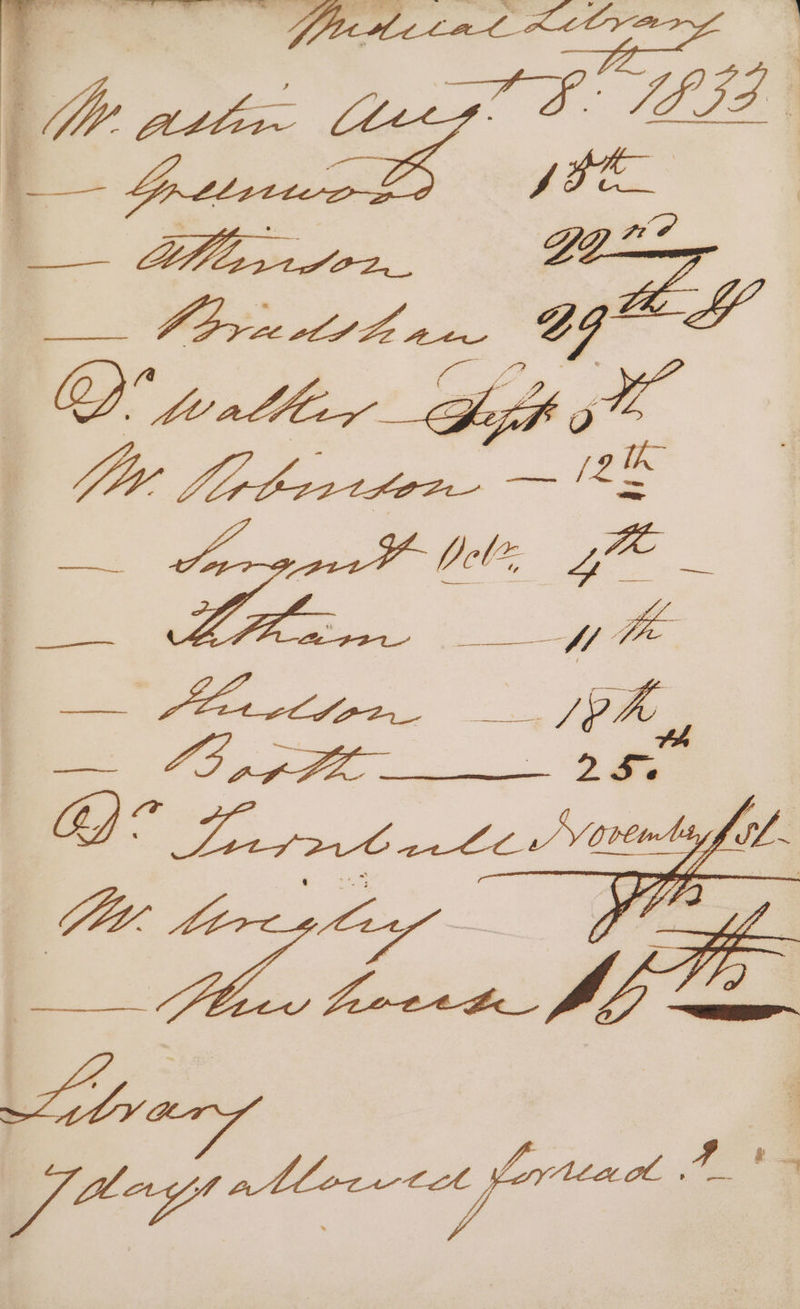 Medical Library
Mr. Astin Augt. 8th. 1833
— Greenwood 15th
— Atkinson 22nd
— Bradshaw 29th
Dr. Walker — Sept 5th
Mr. Robinson — 12th
— Sargent Octr. 4th —
— Tatham — 11th
— Hudson — 18th
— Booth — 25.th
Dr. Turnbull November 1st-
Mr. Wrigley — 8th
— Newhouse 15th
Library
7 days allowed for read.g